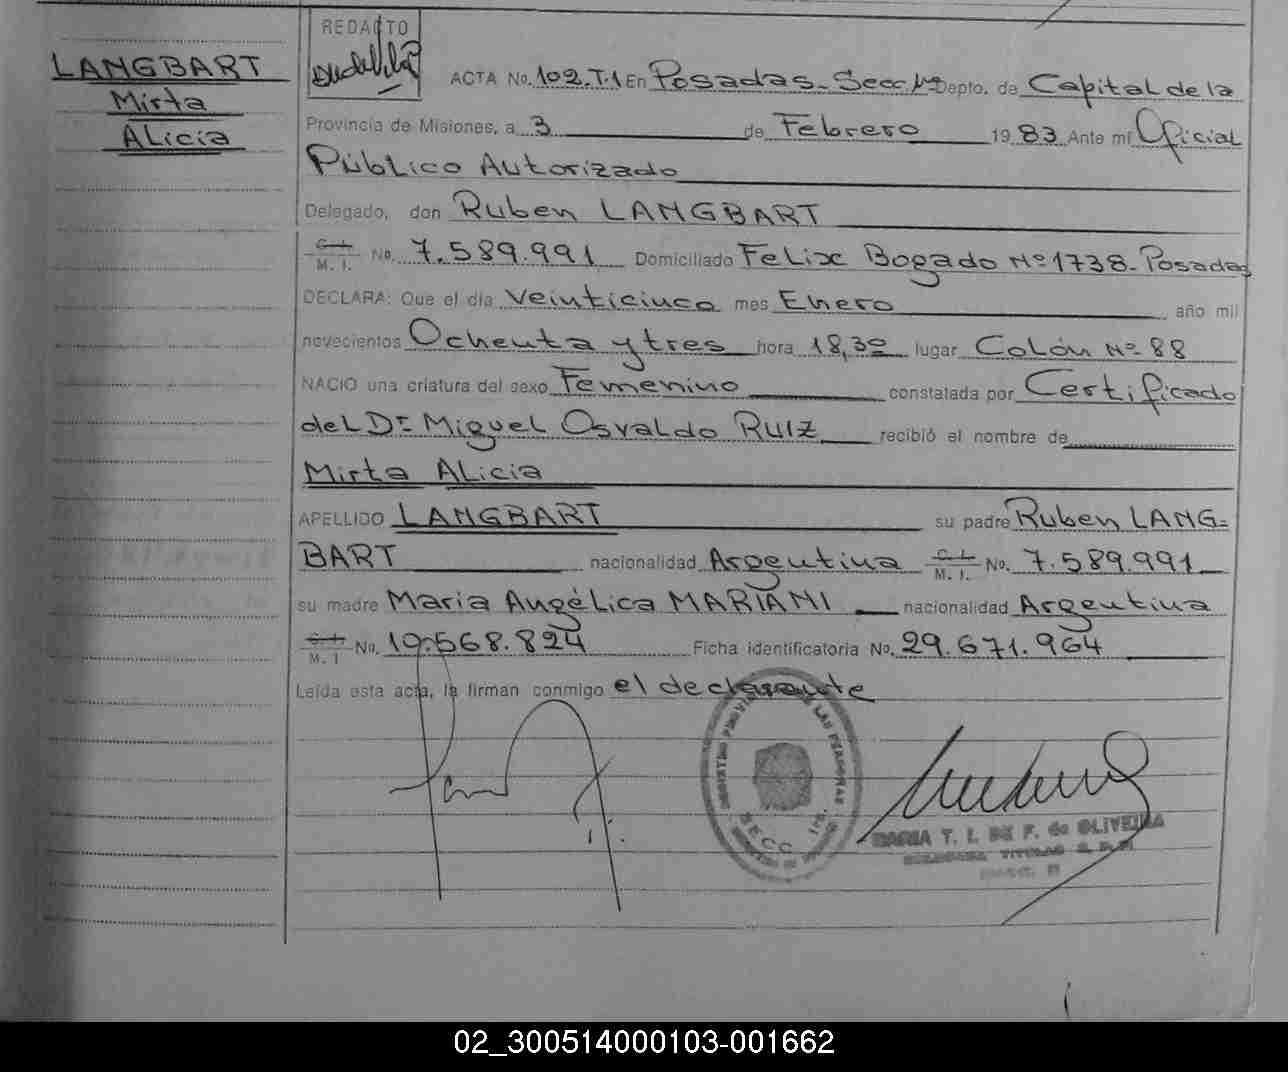 LANGBART
Mirta
ALicia
REDACTO
ACTA No. 102.T.1 En Posadas-Secc. 1ª Depto. de Capital de la
Provincia de Misiones, a 3 de Febrero 1983 Ante mi Oficial
Público Autorizado
Delegado, don Ruben LANGBART
C. I. M. I. No. 7.589.991 Domiciliado Felix Bogado Nº 1738-Posadas
DECLARA: Que el día Veinticinco mes Enero año mil
novecientos Ochenta y tres hora 18,30 lugar Colón Nº 88
NACIO una criatura del sexo Femenino constatada por Certificado
del Dr Miguel Osvaldo RUIZ recibió el nombre de
Mirta ALicia
APELLIDO LANGBART su padre Ruben LANG=
BART nacionalidad Argentina C. I. M. I. No. 7.589.991
su madre Maria Angélica MARIANI nacionalidad Argentina
C. I. M. I No. 10.568.824 Ficha identificatoria No. 29.671.964
Leída esta acta, la firman conmigo el declarante
REGISTRO PROVINCIAL DE LAS PERSONAS
SECC. 1ra.
MARIA T. I. DE F. de OLIVEIRA
02_300514000103-001662